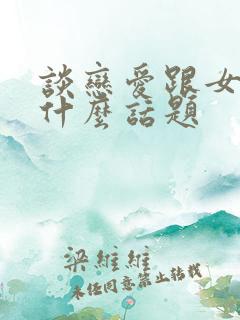 談戀愛跟女
什麼話題
梁維維
未經同意禁止轉載